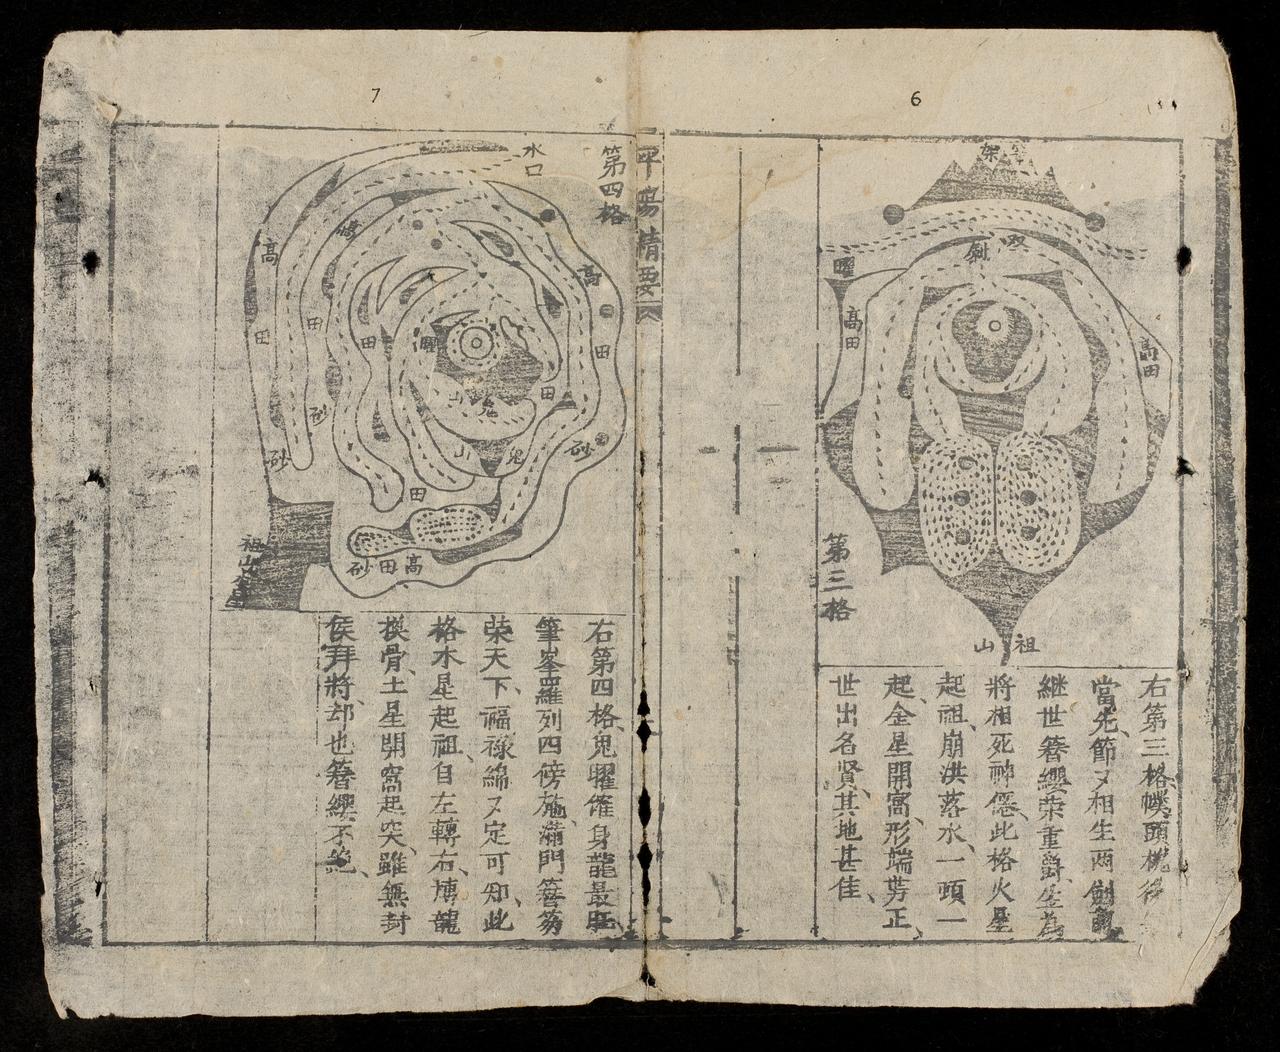 6
筆架
雙
劍
曜
高田
高田
第三格
祖山
右第三格幞頭梘後
當先節又相生兩劍前
継世簪纓荣重爵生為
將相死神僊此格火星
起祖崩洪落水一頭一
起金星開窩形端莠正
世出名賢其地甚佳
平陽精要
7
第四格
水口
高
高
高
田
田
田
田
田
田
砂
砂
砂
曜
鬼山
鬼山
高田砂
祖山水星
右第四格鬼曜催身龍最旺
筆峯羅列四傍施滿門簪笏
荣天下福禄綿又定可知此
格水星起祖自左轉右博龍
換骨土星開窩起突雖無封
侯拜將却也簪纓不絶